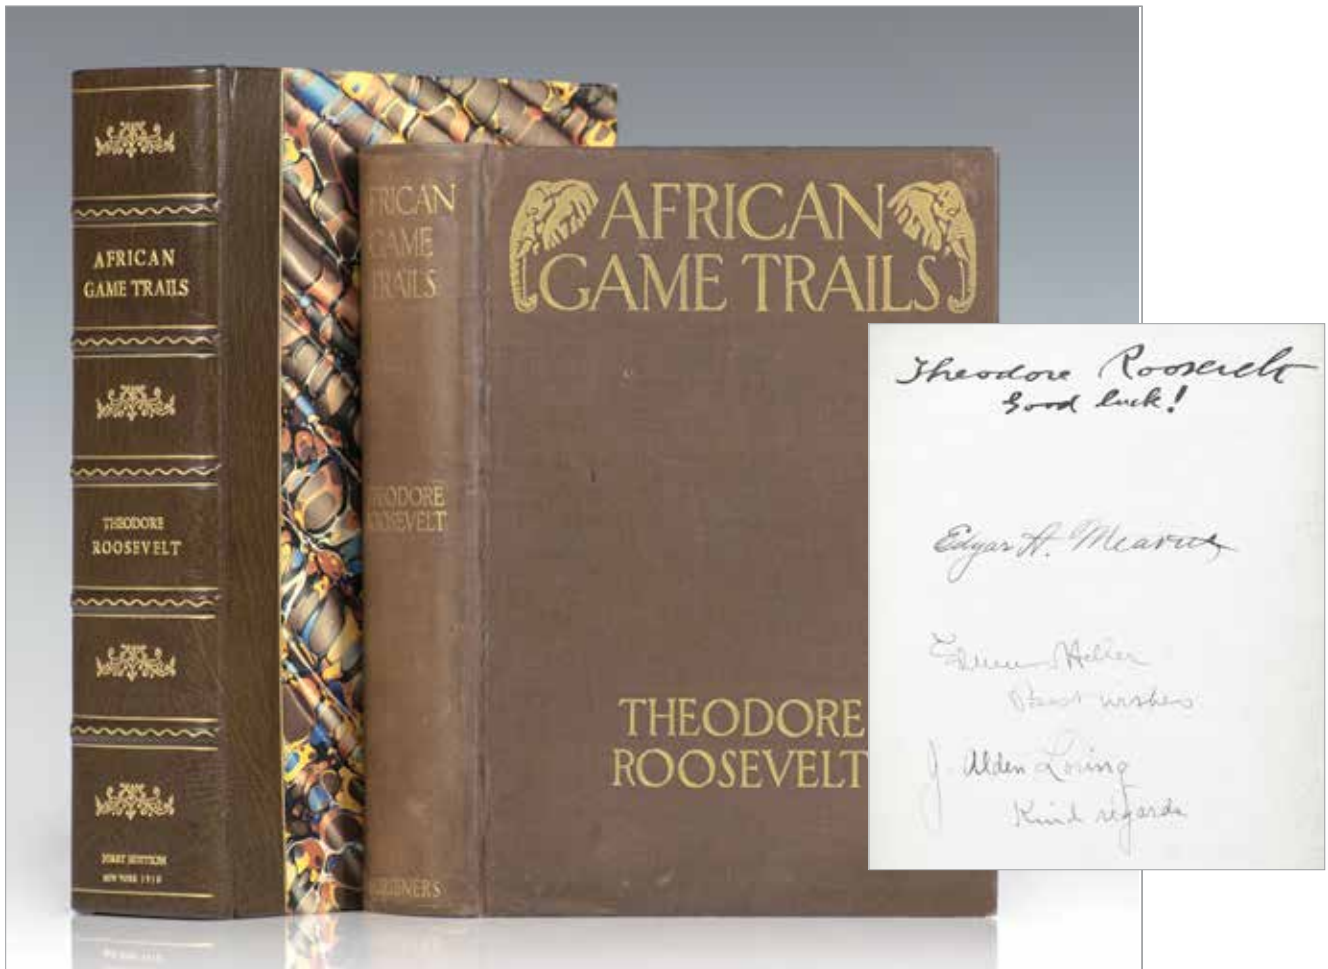 AFRICAN
GAME TRAILS
THEODORE
ROOSEVELT
FIRST EDITION
NEW YORK 1910
FRICAN
GAME
TRAILS
THEODORE
ROOSEVELT
SCRIBNER'S
AFRICAN
GAME TRAILS
THEODORE
ROOSEVELT
Theodore Roosevelt
Good luck!
Edgar A. Mearns
Heller
Best wishes
J. Alden Loring
Kind regards